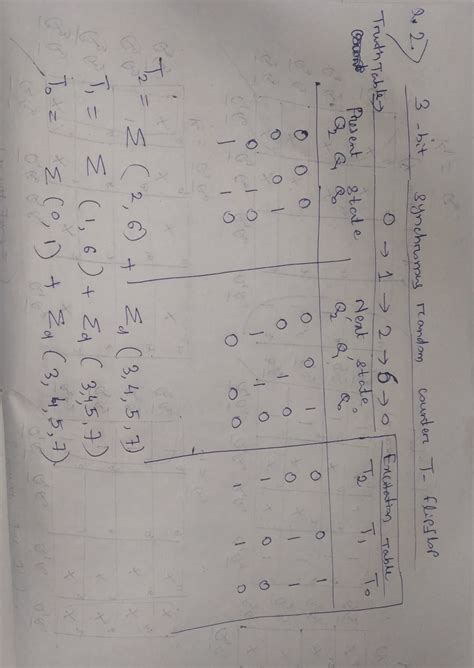 Q.2.) 3-bit synchronous random counter T-flipflop
0 → 1 → 2 → 6 → 0
Truth Table→
Present state Next state Excitation Table
Q2 Q1 Q0 Q2' Q1' Q0' T2 T1 T0
0 0 0 0 0 1 0 0 1
0 0 1 0 1 0 0 1 1
0 1 0 1 1 0 1 0 0
1 1 0 0 0 0 1 1 0
T2 = Σ (2,6) + Σd (3,4,5,7)
T1 = Σ (1,6) + Σd (3,4,5,7)
T0 = Σ (0,1) + Σd (3,4,5,7)